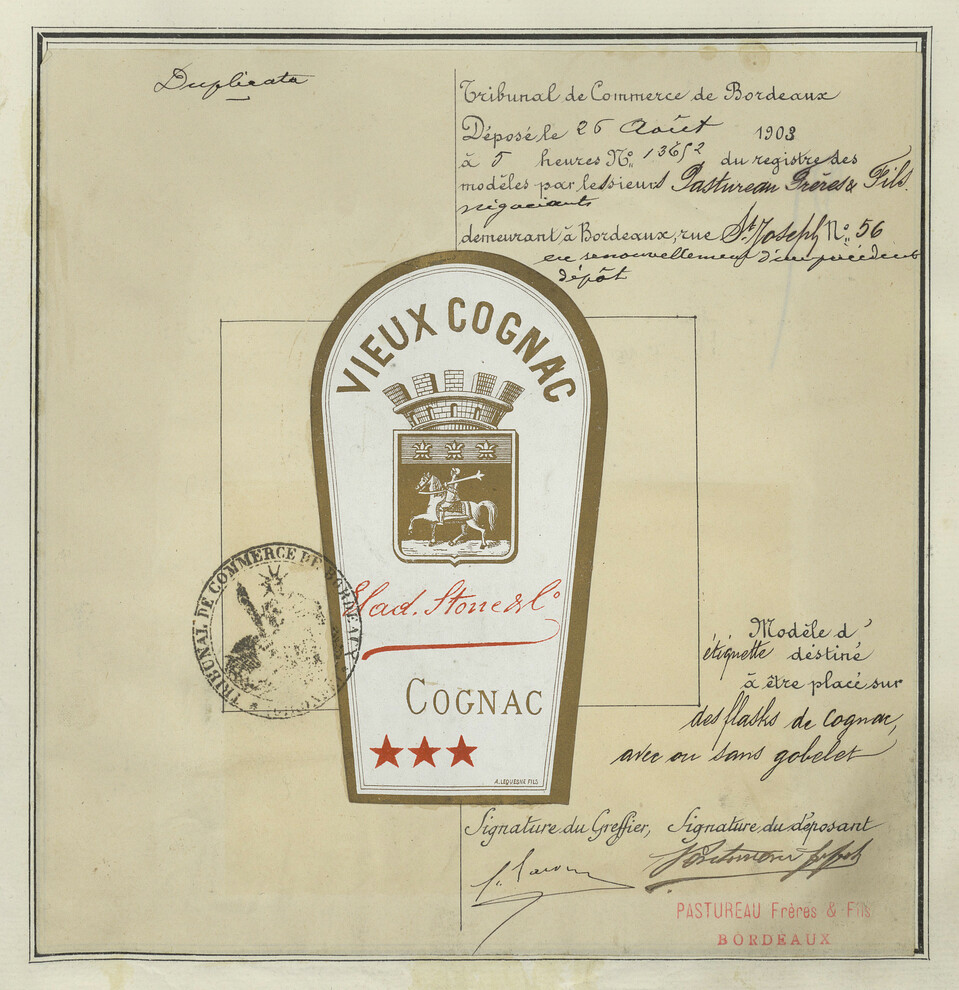 Duplicata
Tribunal de Commerce de Bordeaux
Déposé le 26 Août 1903
à 5 heures No. 13652 du registre des
modèles par les sieurs Pastureau Frères & Fils
négociants
demeurant à Bordeaux, rue St. Joseph No. 56
en renouvellement d'un précédent
dépôt
VIEUX COGNAC
TRIBUNAL DE COMMERCE DE BORDEAUX
Stone & Co
COGNAC
A. LEQUESNE FILS
Modèle d'
étiquette destiné
à être placé sur
des flasks de Cognac,
avec ou sans gobelet
Signature du Greffier, Signature du déposant
PASTUREAU Frères & Fils
BORDEAUX